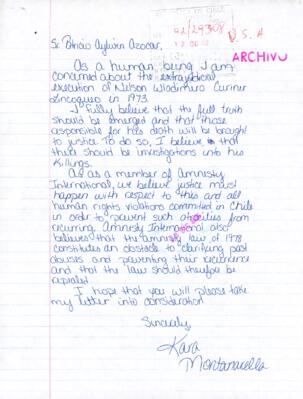 92/29308 U.S.A
ARCHIVO
Sr. Patricio Aylwin Azocar,
As a human being I am
concerned about the extrajudicial
execution of Nelson Wladimiro Curiñir
Lincoqueo in 1973.
I fully believe that the full truth
should be emerged and that those
responsible for his death will be brought
to justice. To do so, I believe that
there should be investigations into his
killings.
As as a member of Amnesty
International, we believe justice must
happen with respect to this and all
human rights violations committed in Chile
in order to prevent such atrocities from
recurring. Amnesty International also
believes that the amnesty law of 1978
constitutes an obstacle to clarifying past
abuses and preventing their recurrence
and that the law should therefore be
repealed.
I hope that you will please take
my letter into consideration
Sincerely,
Kara